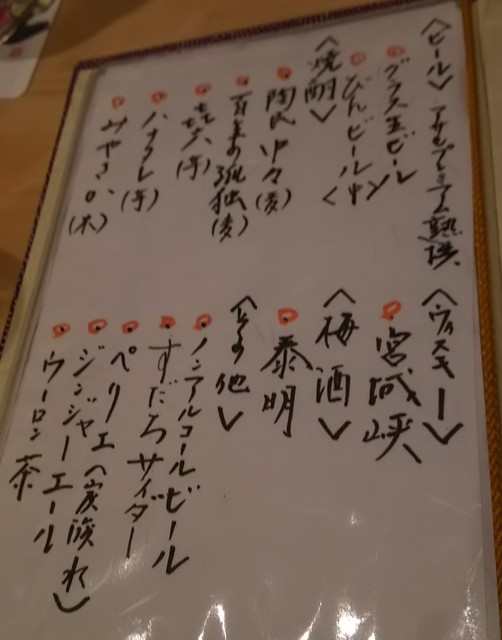 〈ビール〉 アサヒプレミアム熟撰
グラス生ビール
びんビール〈中〉
〈焼酎〉
陶眠中々(麦)
百年の孤独(麦)
㐂六(芋)
ハナタレ(芋)
(米)
〈ウィスキー〉
宮城峡
〈梅酒〉
泰明
〈その他〉
ノンアルコールビール
すだちサイダー
ペリエ(炭酸水)
ジンジャーエール
ウーロン茶